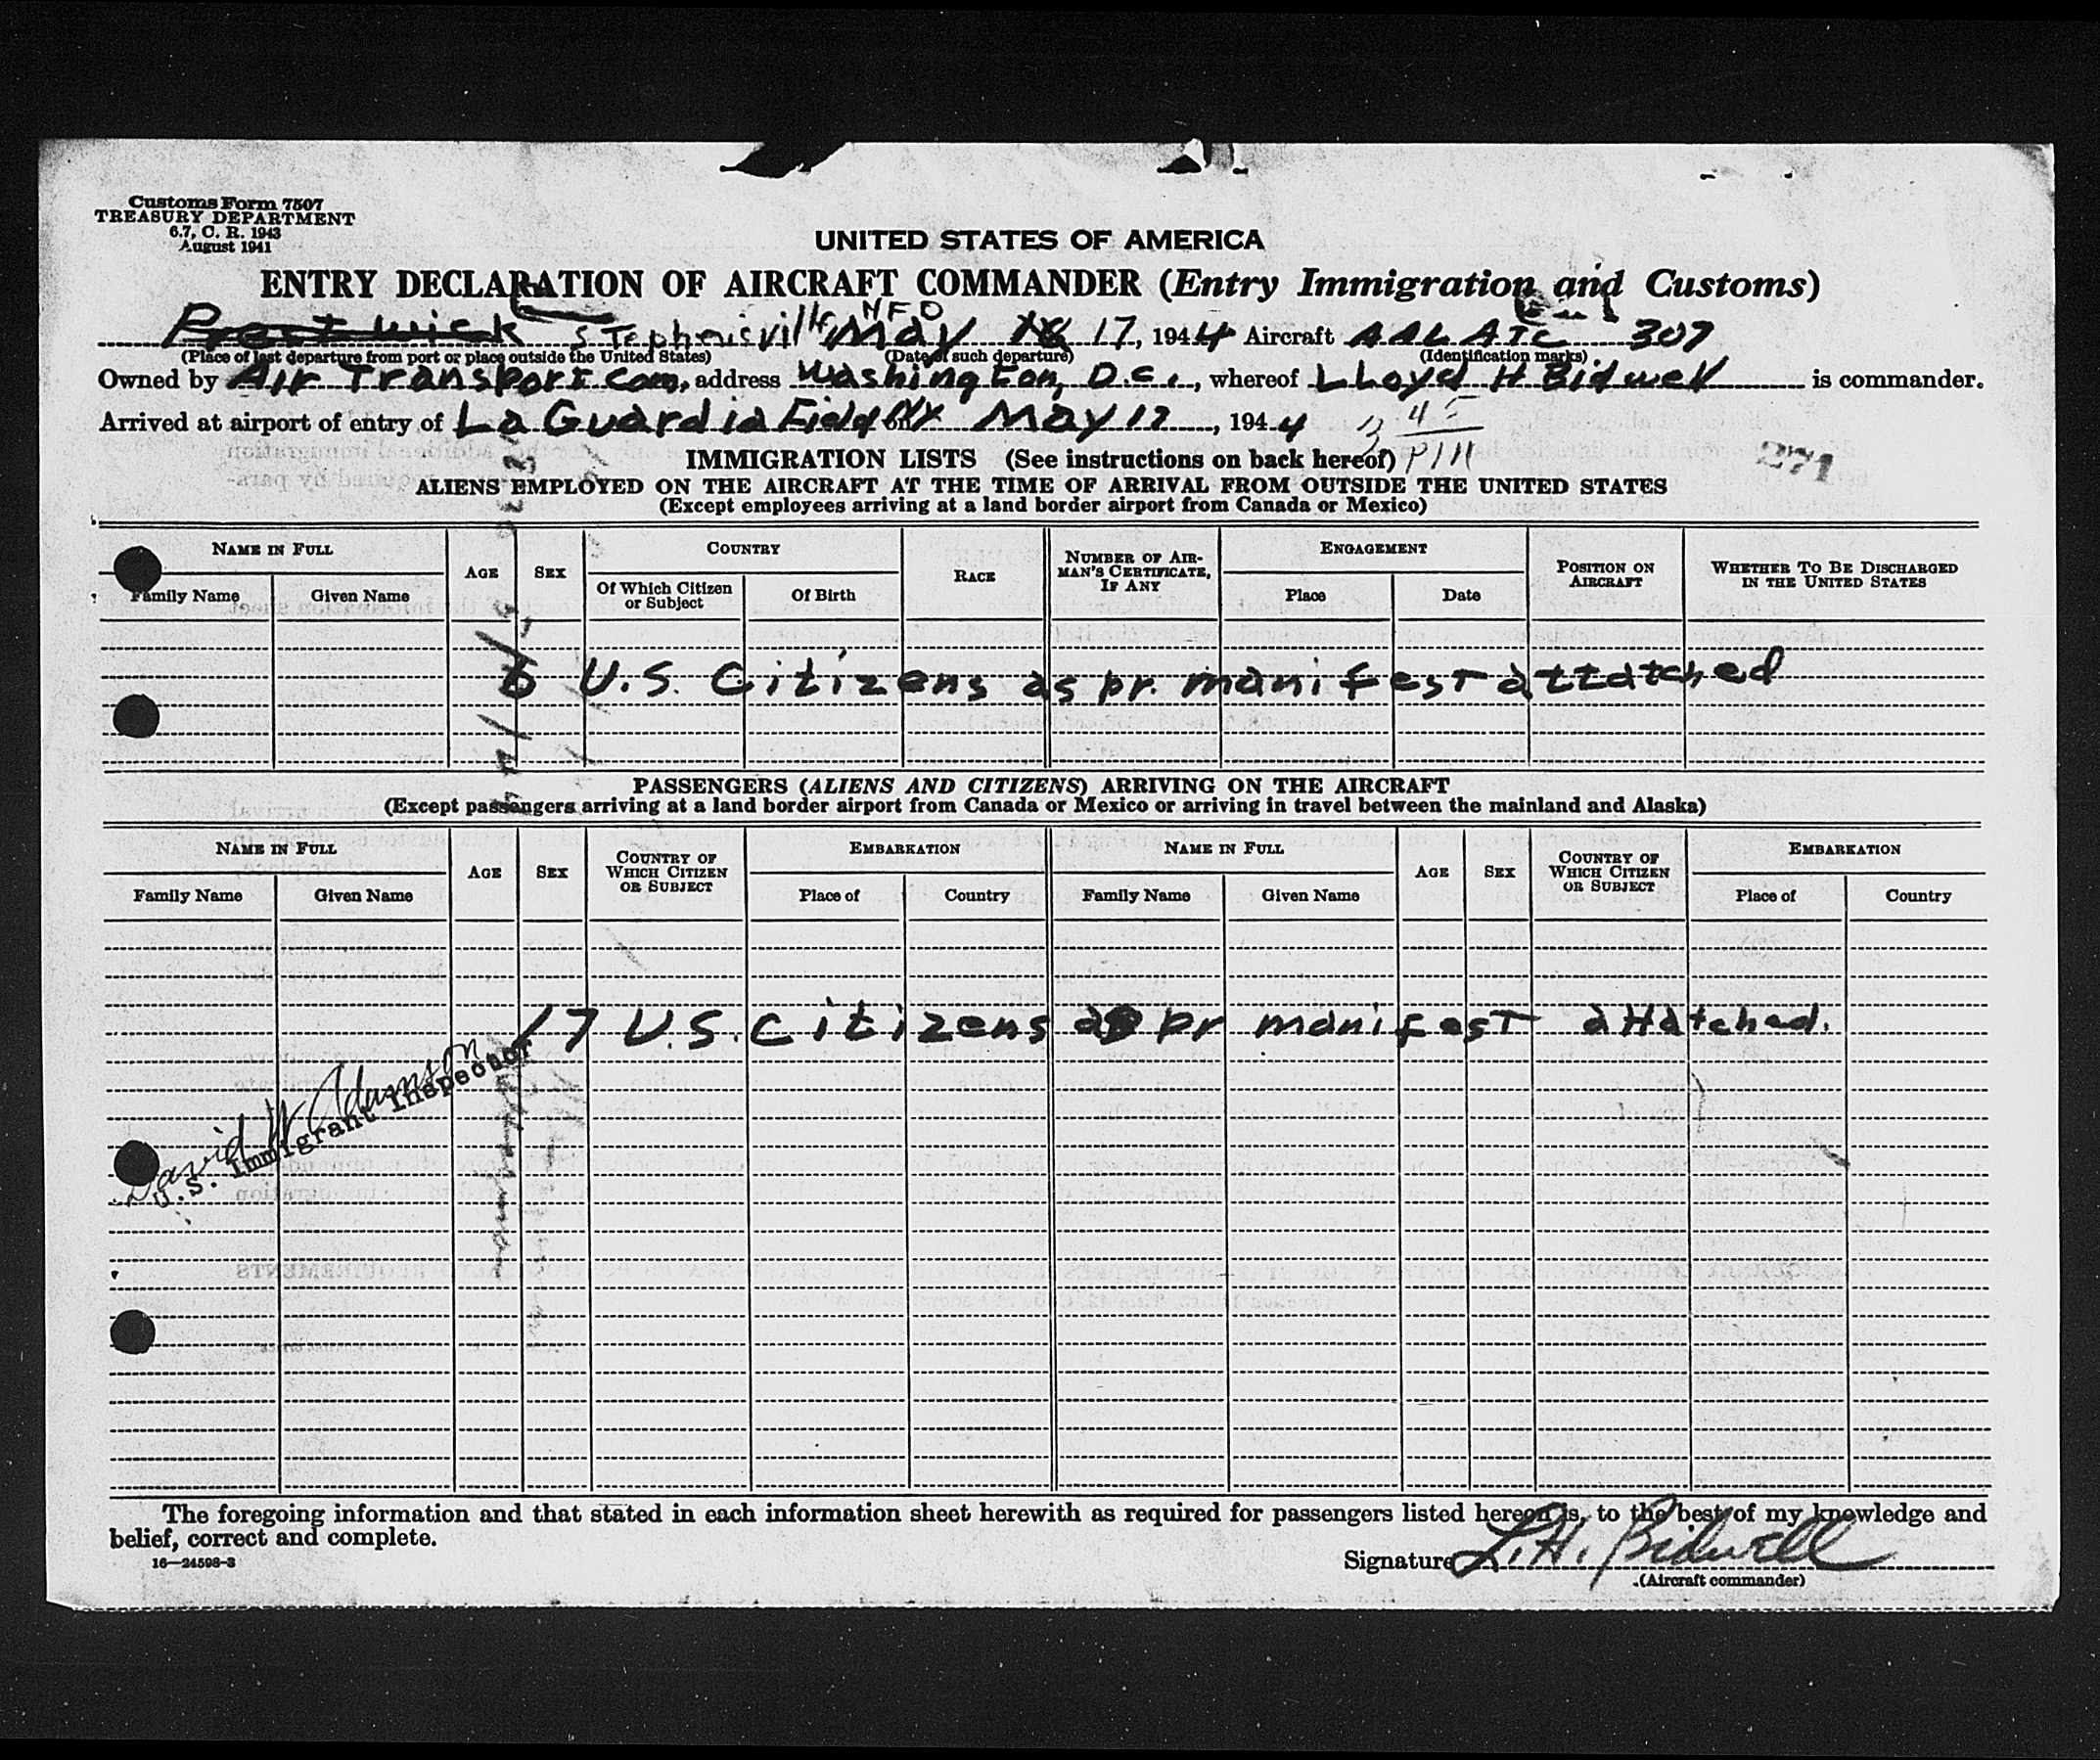 Customs Form 7507
TREASURY DEPARTMENT
6.7, C. R. 1943
August 1941
UNITED STATES OF AMERICA
ENTRY DECLARATION OF AIRCRAFT COMMANDER (Entry Immigration and Customs)
Prestwick Stephenisville NFD May 18 17, 1944 Aircraft AAL ATC 307
(Place of last departure from port or place outside the United States) (Date of such departure) (Identification marks)
Owned by Air Transport Com, address Washington, D.C., whereof Lloyd H Bidwell is commander.
Arrived at airport of entry of La Guardia Field NY on May 17, 1944 3 45
IMMIGRATION LISTS (See instructions on back hereof) PM 271
ALIENS EMPLOYED ON THE AIRCRAFT AT THE TIME OF ARRIVAL FROM OUTSIDE THE UNITED STATES
(Except employees arriving at a land border airport from Canada or Mexico)
NAME IN FULL AGE SEX COUNTRY RACE NUMBER OF AIRMAN'S CERTIFICATE, IF ANY ENGAGEMENT POSITION ON AIRCRAFT WHETHER TO BE DISCHARGED IN THE UNITED STATES
Family Name Given Name Of Which Citizen or Subject Of Birth Place Date
6 U.S. Citizens as pr. manifest attatched
PASSENGERS (ALIENS AND CITIZENS) ARRIVING ON THE AIRCRAFT
(Except passengers arriving at a land border airport from Canada or Mexico or arriving in travel between the mainland and Alaska)
NAME IN FULL AGE SEX COUNTRY OF WHICH CITIZEN OR SUBJECT EMBARKATION NAME IN FULL AGE SEX COUNTRY OF WHICH CITIZEN OR SUBJECT EMBARKATION
Family Name Given Name Place of Country Family Name Given Name Place of Country
17 U.S. Citizens as pr manifest attatched.
David W Adamson
U.S. Immigrant Inspector
The foregoing information and that stated in each information sheet herewith as required for passengers listed hereon is, to the best of my knowledge and
belief, correct and complete.
16—24598-3
Signature L.H. Bidwell
(Aircraft commander)